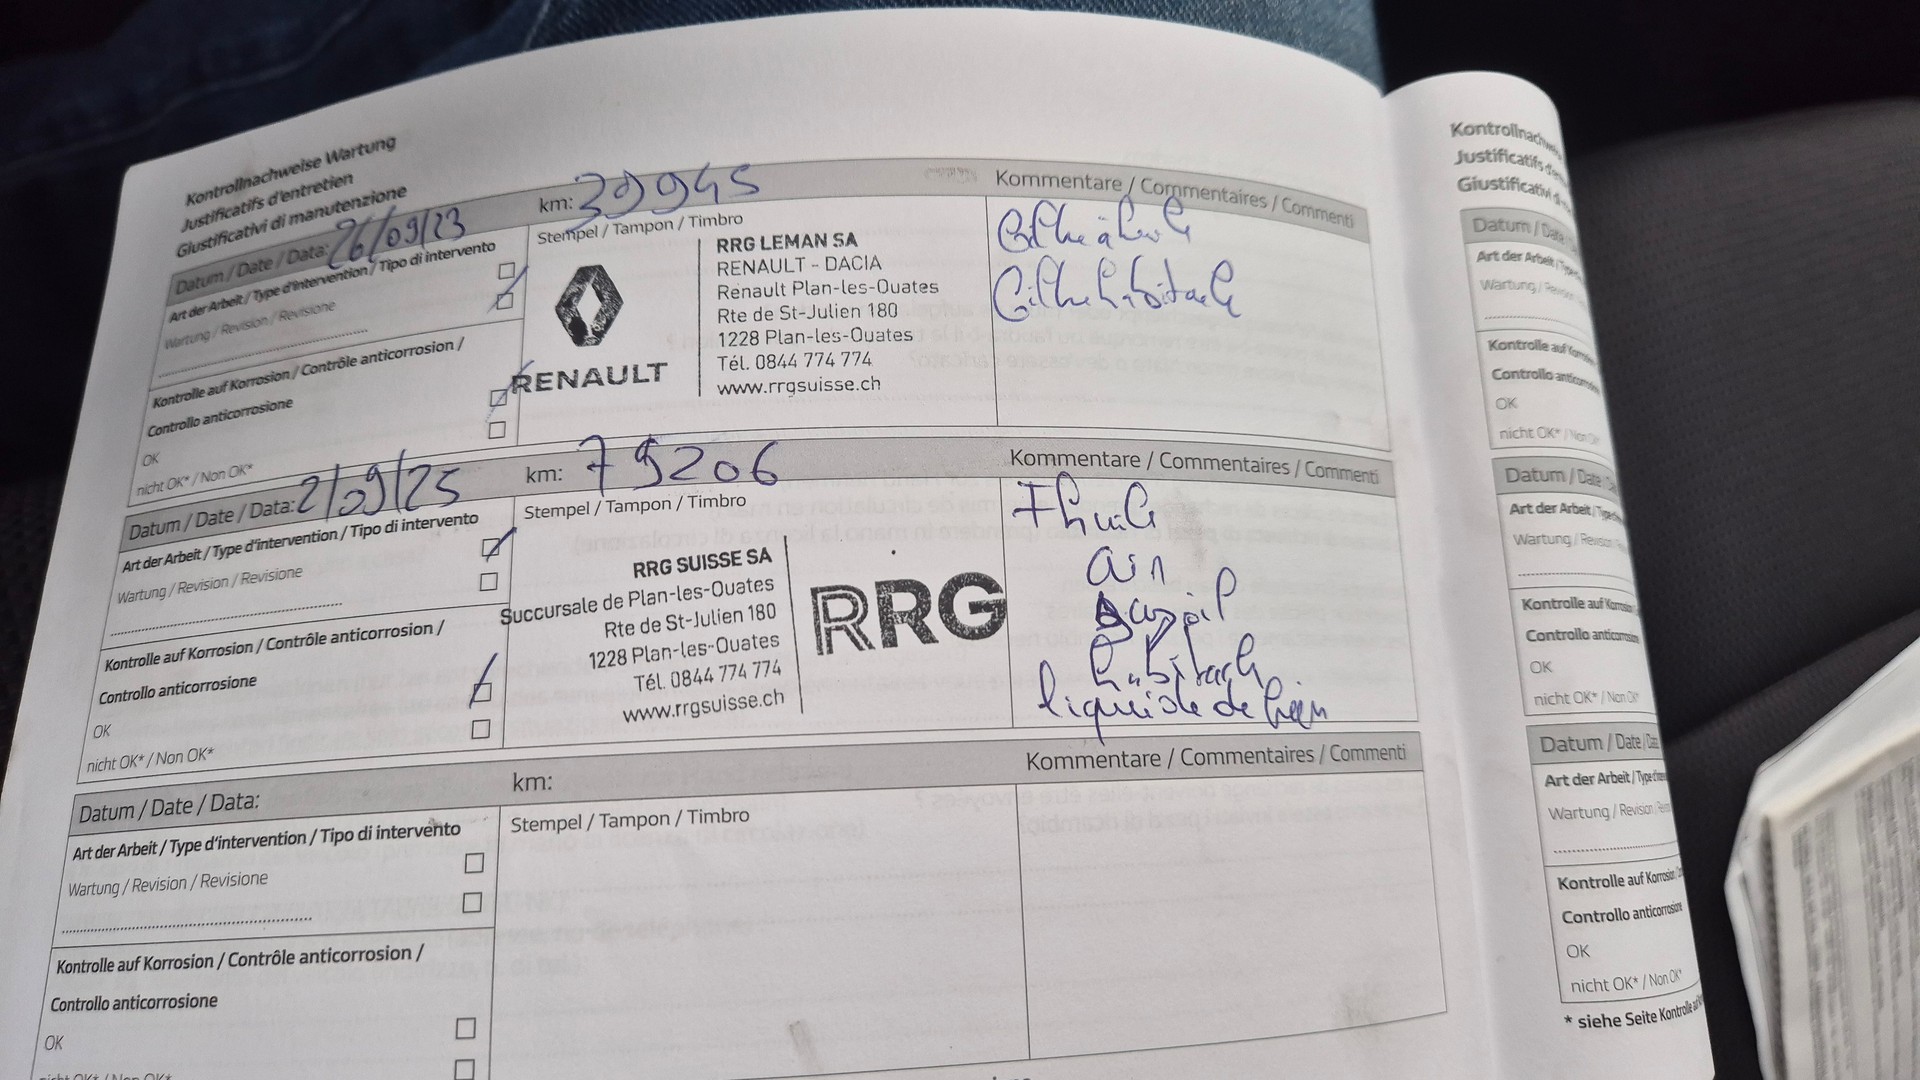 Kontrollnachweise Wartung
Justificatifs d'entretien
Giustificativi di manutenzione
Datum / Date / Data: 26/09/23
km: 39945
Kommentare / Commentaires / Commenti
Art der Arbeit / Type d'intervention / Tipo di intervento
Wartung / Revision / Revisione
Kontrolle auf Korrosion / Contrôle anticorrosion /
Controllo anticorrosione
OK
nicht OK* / Non OK*
Stempel / Tampon / Timbro
RENAULT
RRG LEMAN SA
RENAULT - DACIA
Renault Plan-les-Ouates
Rte de St-Julien 180
1228 Plan-les-Ouates
Tél. 0844 774 774
www.rrgsuisse.ch
habitacle
Datum / Date / Data: 2/09/25
km: 79206
Kommentare / Commentaires / Commenti
Art der Arbeit / Type d'intervention / Tipo di intervento
Wartung / Revision / Revisione
Kontrolle auf Korrosion / Contrôle anticorrosion /
Controllo anticorrosione
OK
nicht OK* / Non OK*
Stempel / Tampon / Timbro
RRG SUISSE SA
Succursale de Plan-les-Ouates
Rte de St-Julien 180
1228 Plan-les-Ouates
Tél. 0844 774 774
www.rrgsuisse.ch
RRG
F huile
air
gazoil
habitacle
liquide de frein
Datum / Date / Data:
km:
Kommentare / Commentaires / Commenti
Art der Arbeit / Type d'intervention / Tipo di intervento
Wartung / Revision / Revisione
Kontrolle auf Korrosion / Contrôle anticorrosion /
Controllo anticorrosione
OK
nicht OK* / Non OK*
Stempel / Tampon / Timbro
Justificatifs
Datum / Date
Art der Arbeit
Wartung
Kontrolle auf
Controllo
OK
nicht OK* / Non OK*
Datum / Date
Art der Arbeit
Wartung
Kontrolle auf
Controllo
OK
nicht OK* / Non OK*
Datum / Date
Art der Arbeit
Wartung / Revision
Kontrolle auf
Controllo anticorrosione
OK
nicht OK* / Non OK*
* siehe Seite Kontrolle